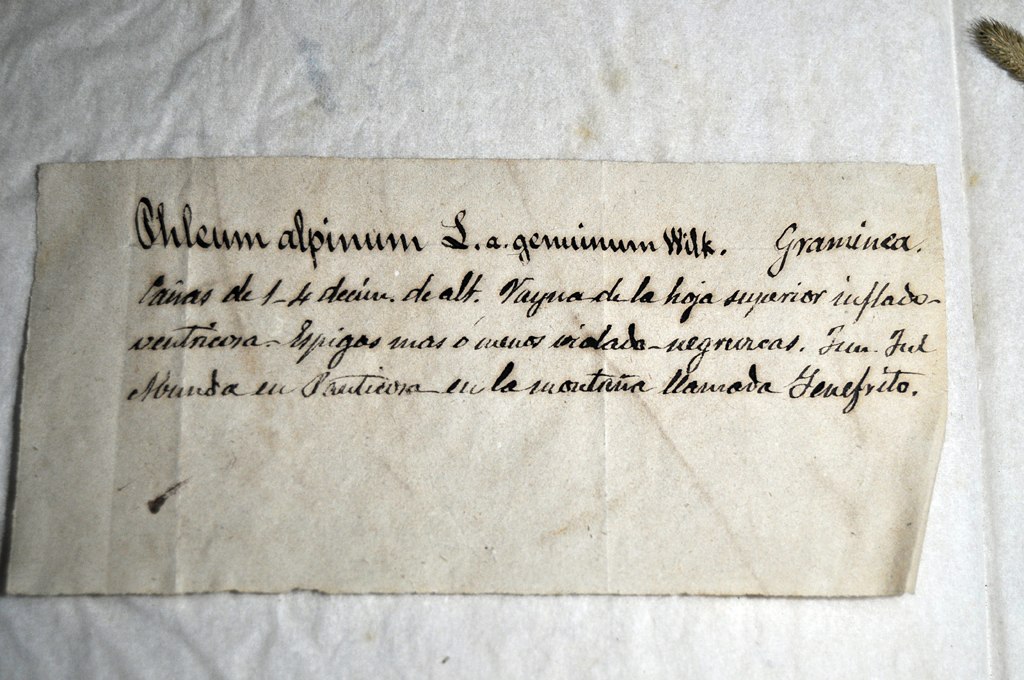 Phleum alpinum L. a. genuinum Wilk. Graminea.
Cañas de 1-4 decím. de alt. Vayna de la hoja superior inflado-
ventricosa - Espigas mas ó menos violado-negruzcas. Jun. Jul
Abunda en Panticosa en la montaña llamada Tenefrito.